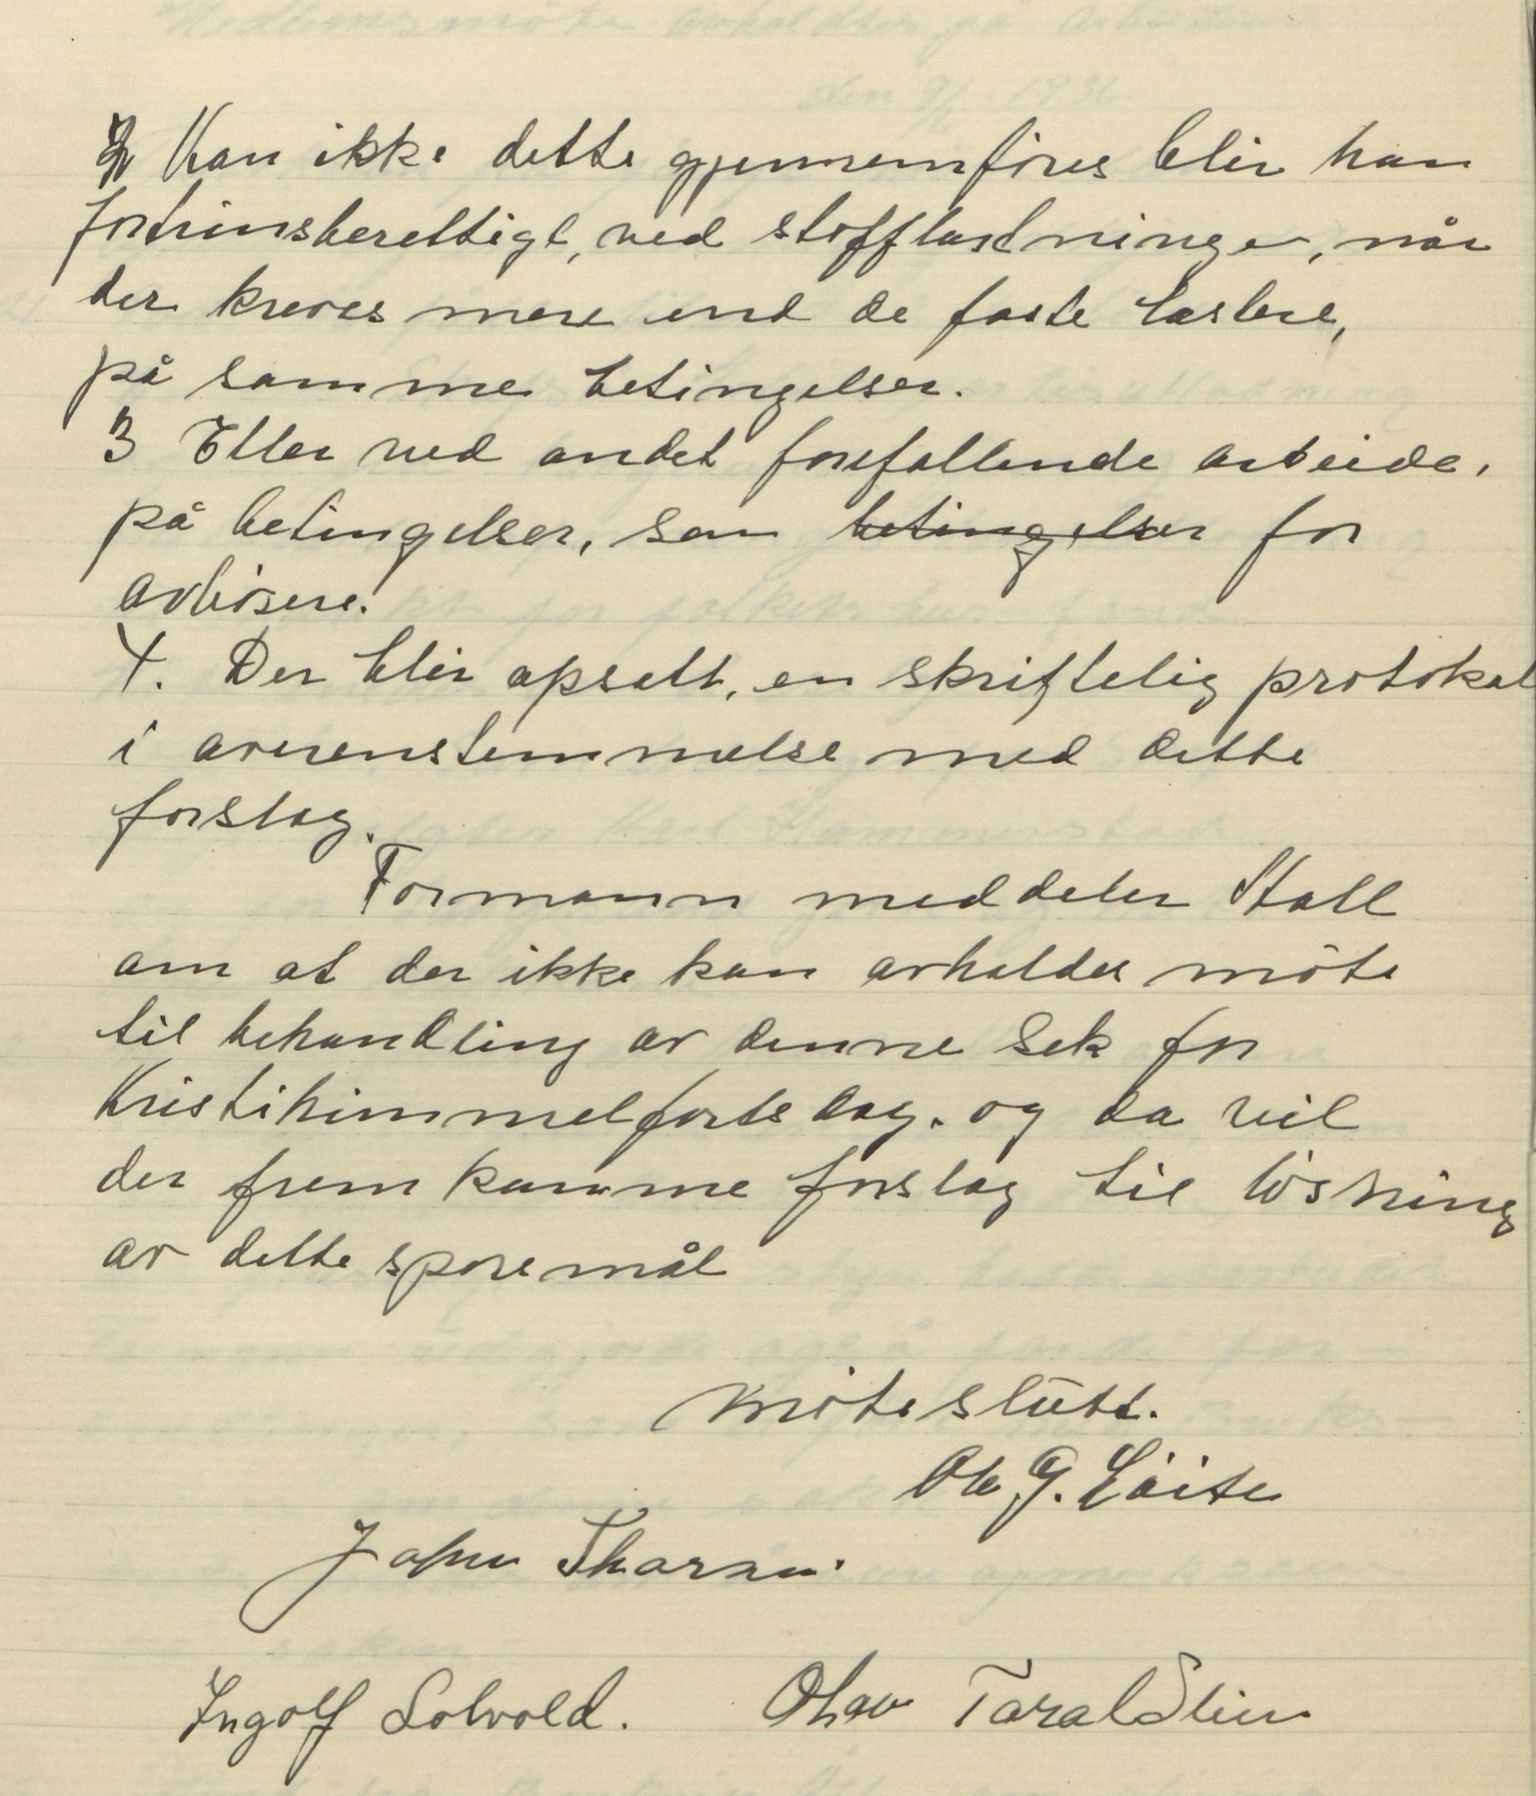 2 Kan ikke dette gjennemføres blir han
fortrinsberettiget, ved stofflastninger, når
der kreves mere end de faste lastere,
på samme betingelser.
3 Eller ved andet forefallende arbeide,
på betingelser, som betingelser for
avløsere.
4. Der blir opsatt, en skriftelig protokol
i overenstemmelse med dette
forslag.
Formann meddeler Stall
om at der ikke kan avholdes møte
til behandling av denne sak før
Kristihimmelfartsdag. og da vil
der fremkomme forslag til løsning
av dette spøremål
Møte slutt.
Ole G. Løite
John Thorsen.
Ingolf Solvold. Olav Taraldlien